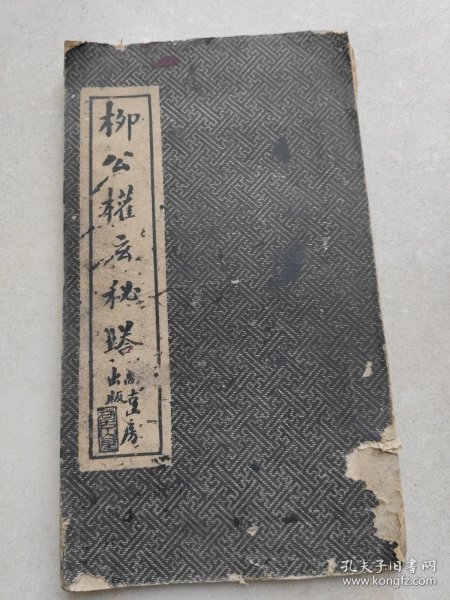 柳公權玄秘塔
出版
孔夫子旧书网
www.kongfz.com